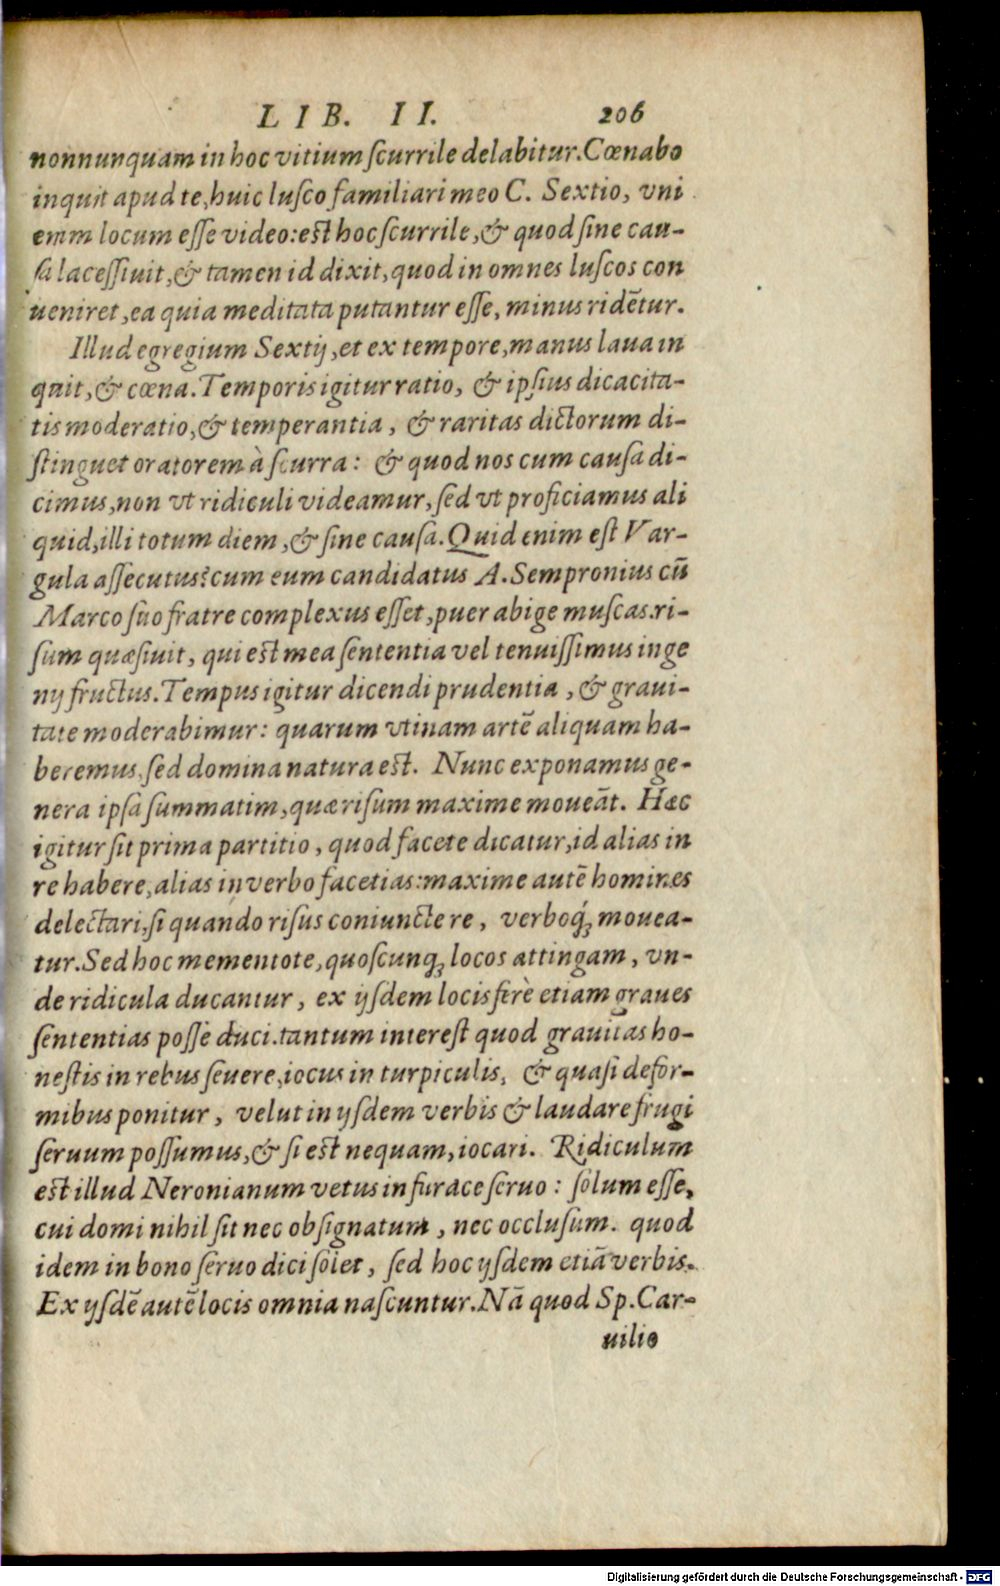 LIB. II. 206
nonnunquam in hoc vitium ſcurrile delabitur. Cœnabo
inquit apud te, huic luſco familiari meo C. Sextio, vni
enim locum eſſe video: eſt hoc ſcurrile, & quod ſine cau-
ſa laceſſiuit, & tamen id dixit, quod in omnes luſcos con
ueniret, ea quia meditata putantur eſſe, minus ridētur.
Illud egregium Sextij, et ex tempore, manus laua in
quit, & cœna. Temporis igitur ratio, & ipſius dicacita-
tis moderatio, & temperantia, & raritas dictorum di-
ſtinguet oratorem à ſcurra: & quod nos cum cauſa di-
cimus, non vt ridiculi videamur, ſed vt proficiamus ali
quid, illi totum diem, & ſine cauſa. Quid enim eſt Var-
gula aſſecutus? cum eum candidatus A. Sempronius cū
Marco ſuo fratre complexus eſſet, puer abige muſcas. ri-
ſum quæſiuit, qui eſt mea ſententia vel tenuiſſimus inge
nij fructus. Tempus igitur dicendi prudentia, & graui-
tate moderabimur: quarum vtinam artē aliquam ha-
beremus, ſed domina natura eſt. Nunc exponamus ge-
nera ipſa ſummatim, quæ riſum maxime moueāt. Hæc
igitur ſit prima partitio, quod facete dicatur, id alias in
re habere, alias in verbo facetias: maxime autē homines
delectari, ſi quando riſus coniuncte re, verboq́ue mouea-
tur. Sed hoc mementote, quoſcunqꝫ locos attingam, vn-
de ridicula ducantur, ex ijſdem locis ferè etiam graues
ſententias poſſe duci. tantum intereſt quod grauitas ho-
neſtis in rebus ſeuere, iocus in turpiculis, & quaſi defor-
mibus ponitur, velut in ijſdem verbis & laudare frugi
ſeruum poſſumus, & ſi eſt nequam, iocari. Ridiculum
eſt illud Neronianum vetus in furace ſeruo: ſolum eſſe,
cui domi nihil ſit nec obſignatum, nec occluſum. quod
idem in bono ſeruo dici ſolet, ſed hoc ijſdem etiā verbis.
Ex ijſdē autē locis omnia naſcuntur. Nā quod Sp. Car-
uilio
Digitalisierung gefördert durch die Deutsche Forschungsgemeinschaft - DFG